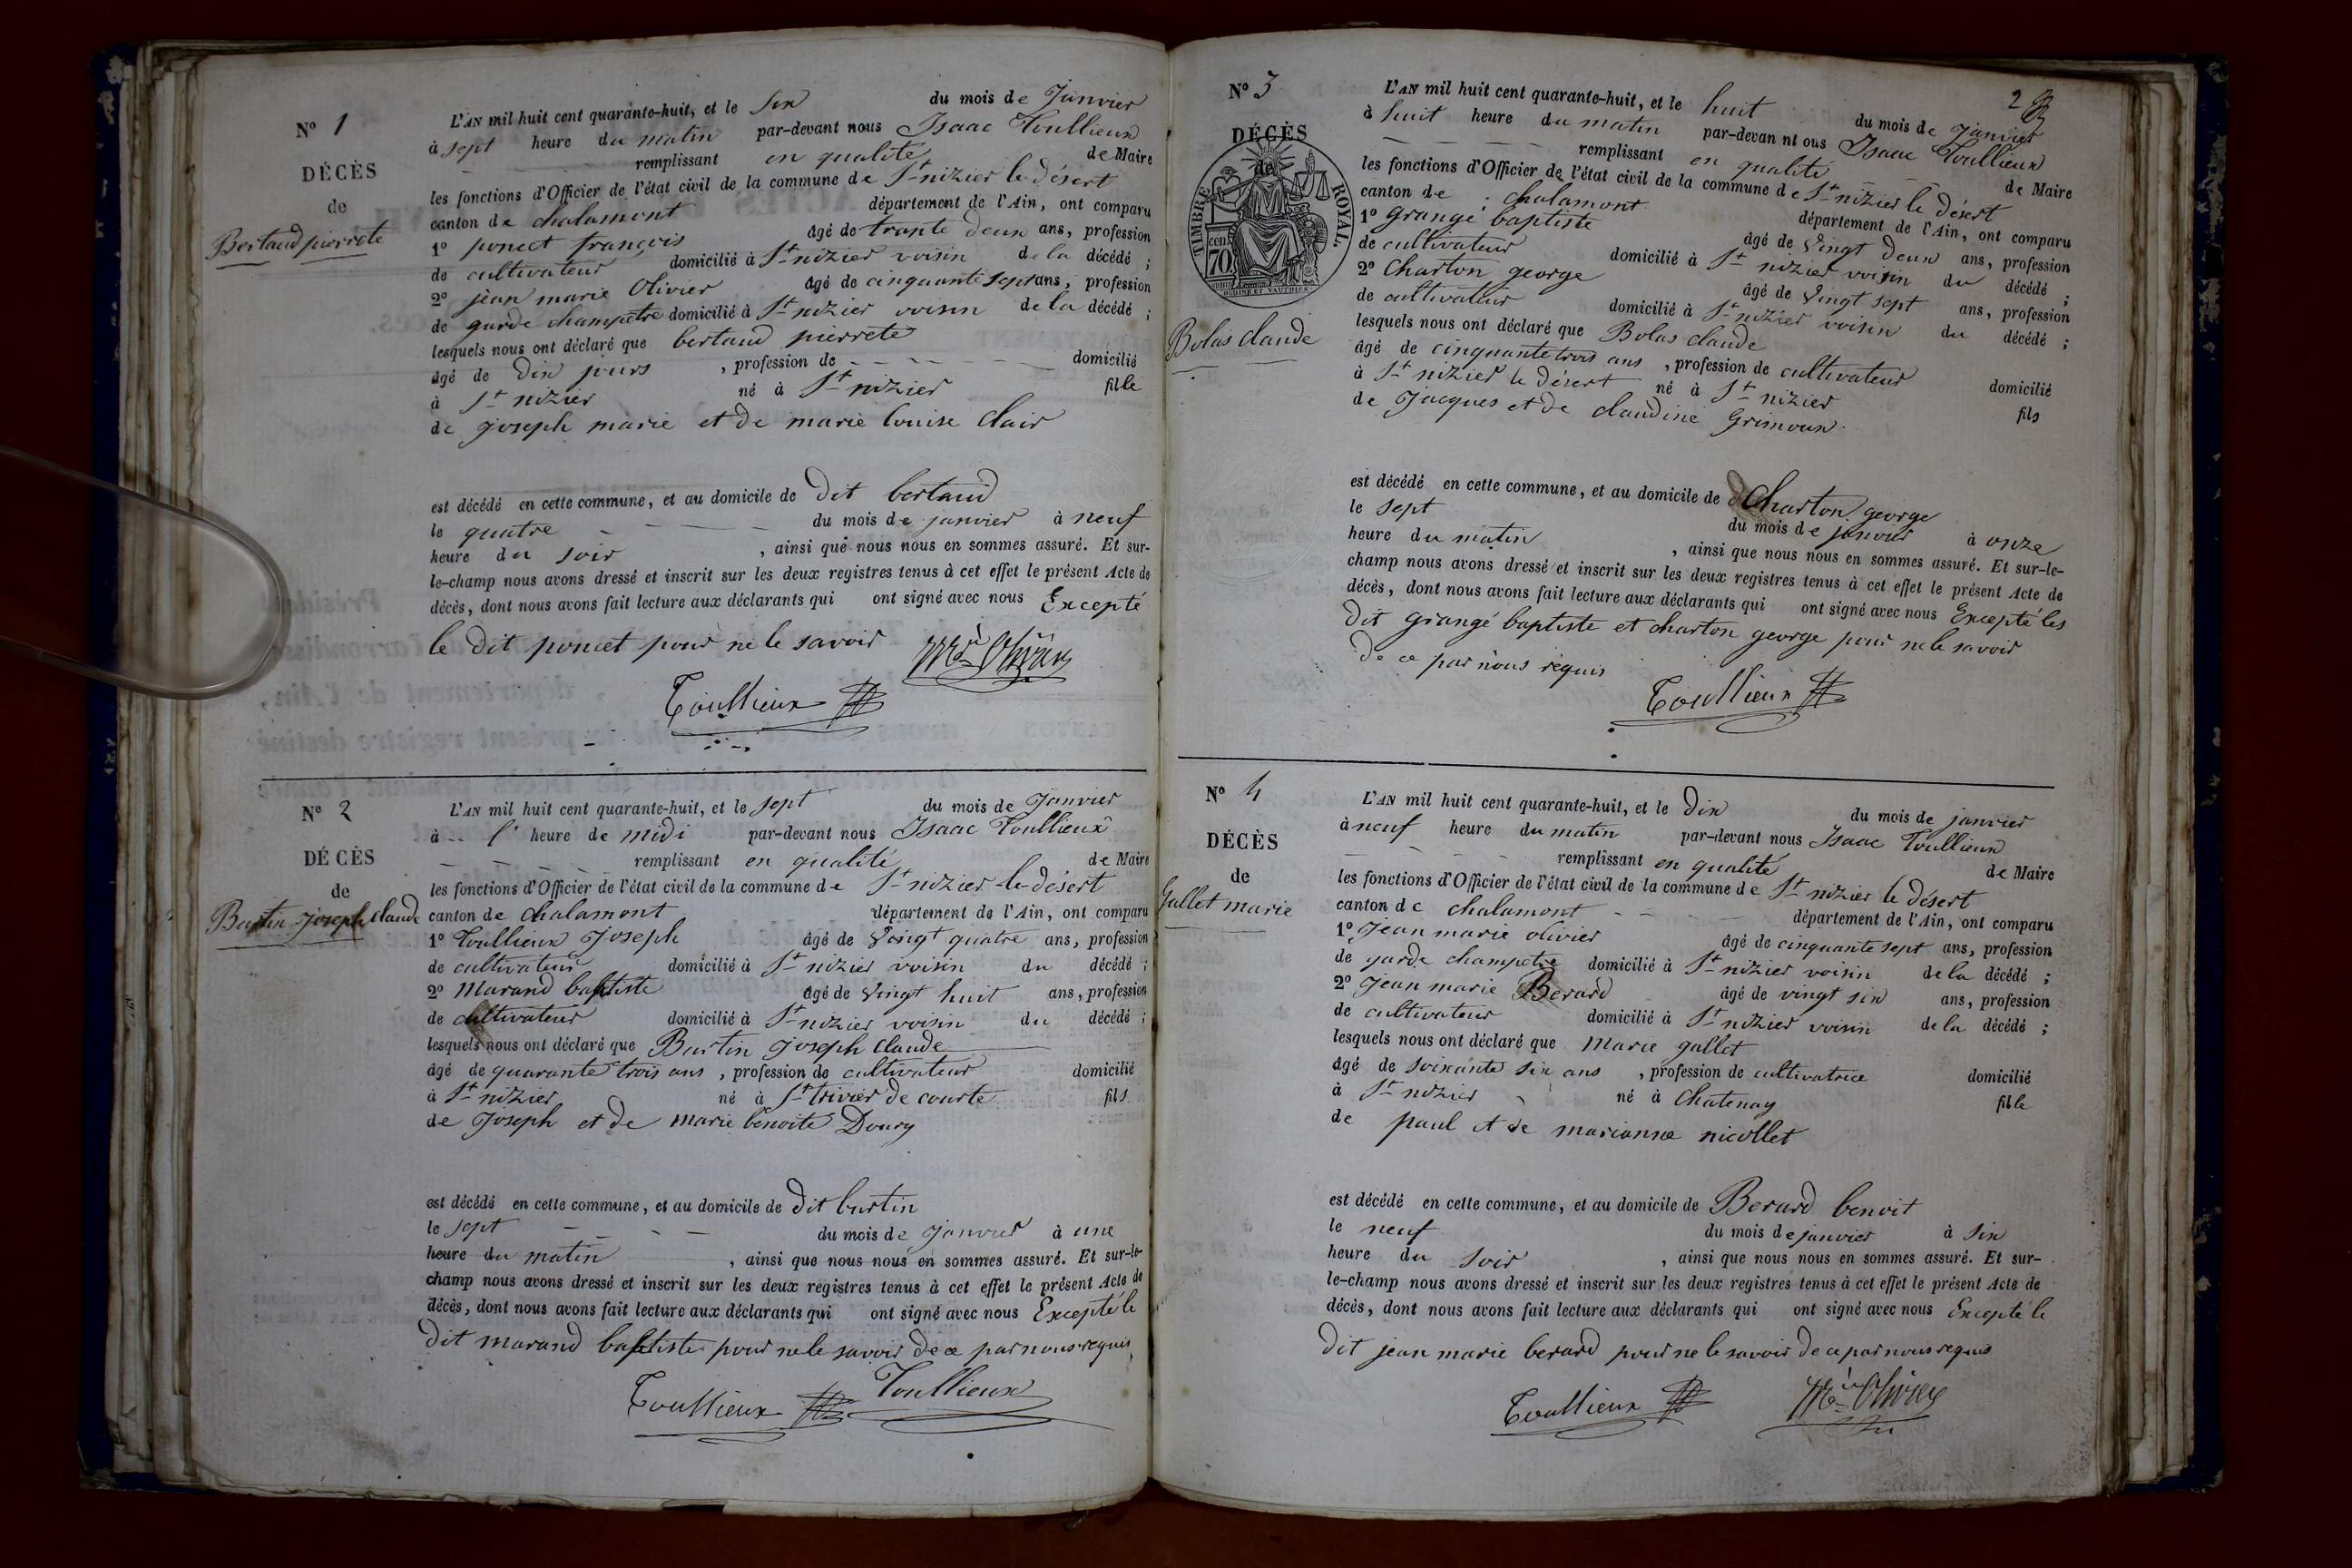 N° 1
DÉCÈS
de
Bertaud pierrete
L'AN mil huit cent quarante-huit, et le six du mois de Janvier
à sept heure du matin par-devant nous Isaac Toullieux
remplissant en qualité de Maire
les fonctions d'Officier de l'état civil de la commune de St nizier le désert
canton de chalamont département de l'Ain, ont comparu
1° poncet françois âgé de trante deux ans, profession
de cultivateur domicilié à St nizier voisin de la décédé ;
2° jean marie Olivier âgé de cinquante sept ans, profession
de garde champetre domicilié à St nizier voisin de la décédé ;
lesquels nous ont déclaré que bertaud pierrete
âgé de dix jours , profession de domicilié
à St nizier né à St nizier fille
de joseph marie et de marie louise clair
est décédé en cette commune, et au domicile de dit bertaud
le quatre du mois de janvier à neuf
heure du soir , ainsi que nous nous en sommes assuré. Et sur-
le-champ nous avons dressé et inscrit sur les deux registres tenus à cet effet le présent Acte de
décès, dont nous avons fait lecture aux déclarants qui ont signé avec nous Excepté
le dit poncet pour ne le savoir
Toullieux
N° 2
DÉCÈS
de
Burtin joseph claude
L'AN mil huit cent quarante-huit, et le sept du mois de Janvier
à l' heure de midi par-devant nous Isaac Toullieux
remplissant en qualité de Maire
les fonctions d'Officier de l'état civil de la commune de St nizier le désert
canton de chalamont département de l'Ain, ont comparu
1° Toullieux Joseph âgé de Vingt quatre ans, profession
de cultivateur domicilié à St nizier voisin du décédé ;
2° Marand baptiste âgé de Vingt huit ans, profession
de cultivateur domicilié à St nizier voisin du décédé ;
lesquels nous ont déclaré que Burtin joseph claude
âgé de quarante trois ans , profession de cultivateur domicilié
à St nizier né à St trivier de courte fils
de Joseph et de marie benoite Doury
est décédé en cette commune, et au domicile de dit burtin
le sept du mois de janvier à une
heure du matin , ainsi que nous nous en sommes assuré. Et sur-le-
champ nous avons dressé et inscrit sur les deux registres tenus à cet effet le présent Acte de
décès, dont nous avons fait lecture aux déclarants qui ont signé avec nous Excepté le
dit marand baptiste pour ne le savoir de ce par nous requis
Toullieux Toullieux
2
N° 3
DÉCÈS
de
TIMBRE ROYAL
cen. 70
Bolas claude
L'AN mil huit cent quarante-huit, et le huit du mois de Janvier
à huit heure du matin par-devan nt ous Isaac Toullieux
remplissant en qualité de Maire
les fonctions d'Officier de l'état civil de la commune de St nizier le désert
canton de chalamont département de l'Ain, ont comparu
1° grangé baptiste âgé de Vingt deux ans, profession
de cultivateur domicilié à St nizier voisin du décédé ;
2° Charton george âgé de Vingt sept ans, profession
de cultivateur domicilié à St nizier voisin du décédé ;
lesquels nous ont déclaré que Bolas claude
âgé de cinquante trois ans , profession de cultivateur domicilié
à St nizier le désert né à St nizier fils
de Jacques et de claudine Grimoux
est décédé en cette commune, et au domicile de Charton george
le sept du mois de janvier à onze
heure du matin , ainsi que nous nous en sommes assuré. Et sur-le-
champ nous avons dressé et inscrit sur les deux registres tenus à cet effet le présent Acte de
décès, dont nous avons fait lecture aux déclarants qui ont signé avec nous Excepté les
dit grangé baptiste et charton george pour ne le savoir
de ce par nous requis
Toullieux
N° 4
DÉCÈS
de
Gallet marie
L'AN mil huit cent quarante-huit, et le dix du mois de janvier
à neuf heure du matin par-devant nous Isaac Toullieux
remplissant en qualité de Maire
les fonctions d'Officier de l'état civil de la commune de St nizier le désert
canton de chalamont département de l'Ain, ont comparu
1° Jean marie olivier âgé de cinquante sept ans, profession
de garde champetre domicilié à St nizier voisin de la décédé ;
2° Jean marie Berard âgé de vingt six ans, profession
de cultivateur domicilié à St nizier voisin de la décédé ;
lesquels nous ont déclaré que Marie gallet
âgé de soixante six ans , profession de cultivatrice domicilié
à St nizier né à Chatenay fille
de paul et de marianne nicollet
est décédé en cette commune, et au domicile de Berard benoit
le neuf du mois de janvier à six
heure du soir , ainsi que nous nous en sommes assuré. Et sur-
le-champ nous avons dressé et inscrit sur les deux registres tenus à cet effet le présent Acte de
décès, dont nous avons fait lecture aux déclarants qui ont signé avec nous Excepté le
dit jean marie berard pour ne le savoir de ce par nous requis
Toullieux